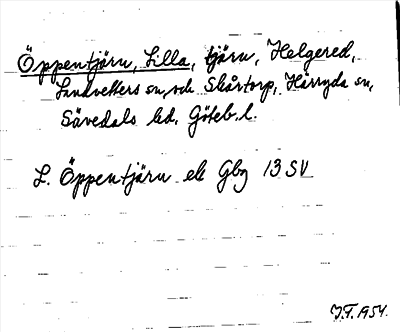 Öppentjärn, Lilla, tjärn, Helgered,
Landvetters sn, och Skårtorp, Härryda sn,
Sävedals hd, Göteb. l.
L. Öppentjärn ek Gbg 13 SV
J.F. 1954.